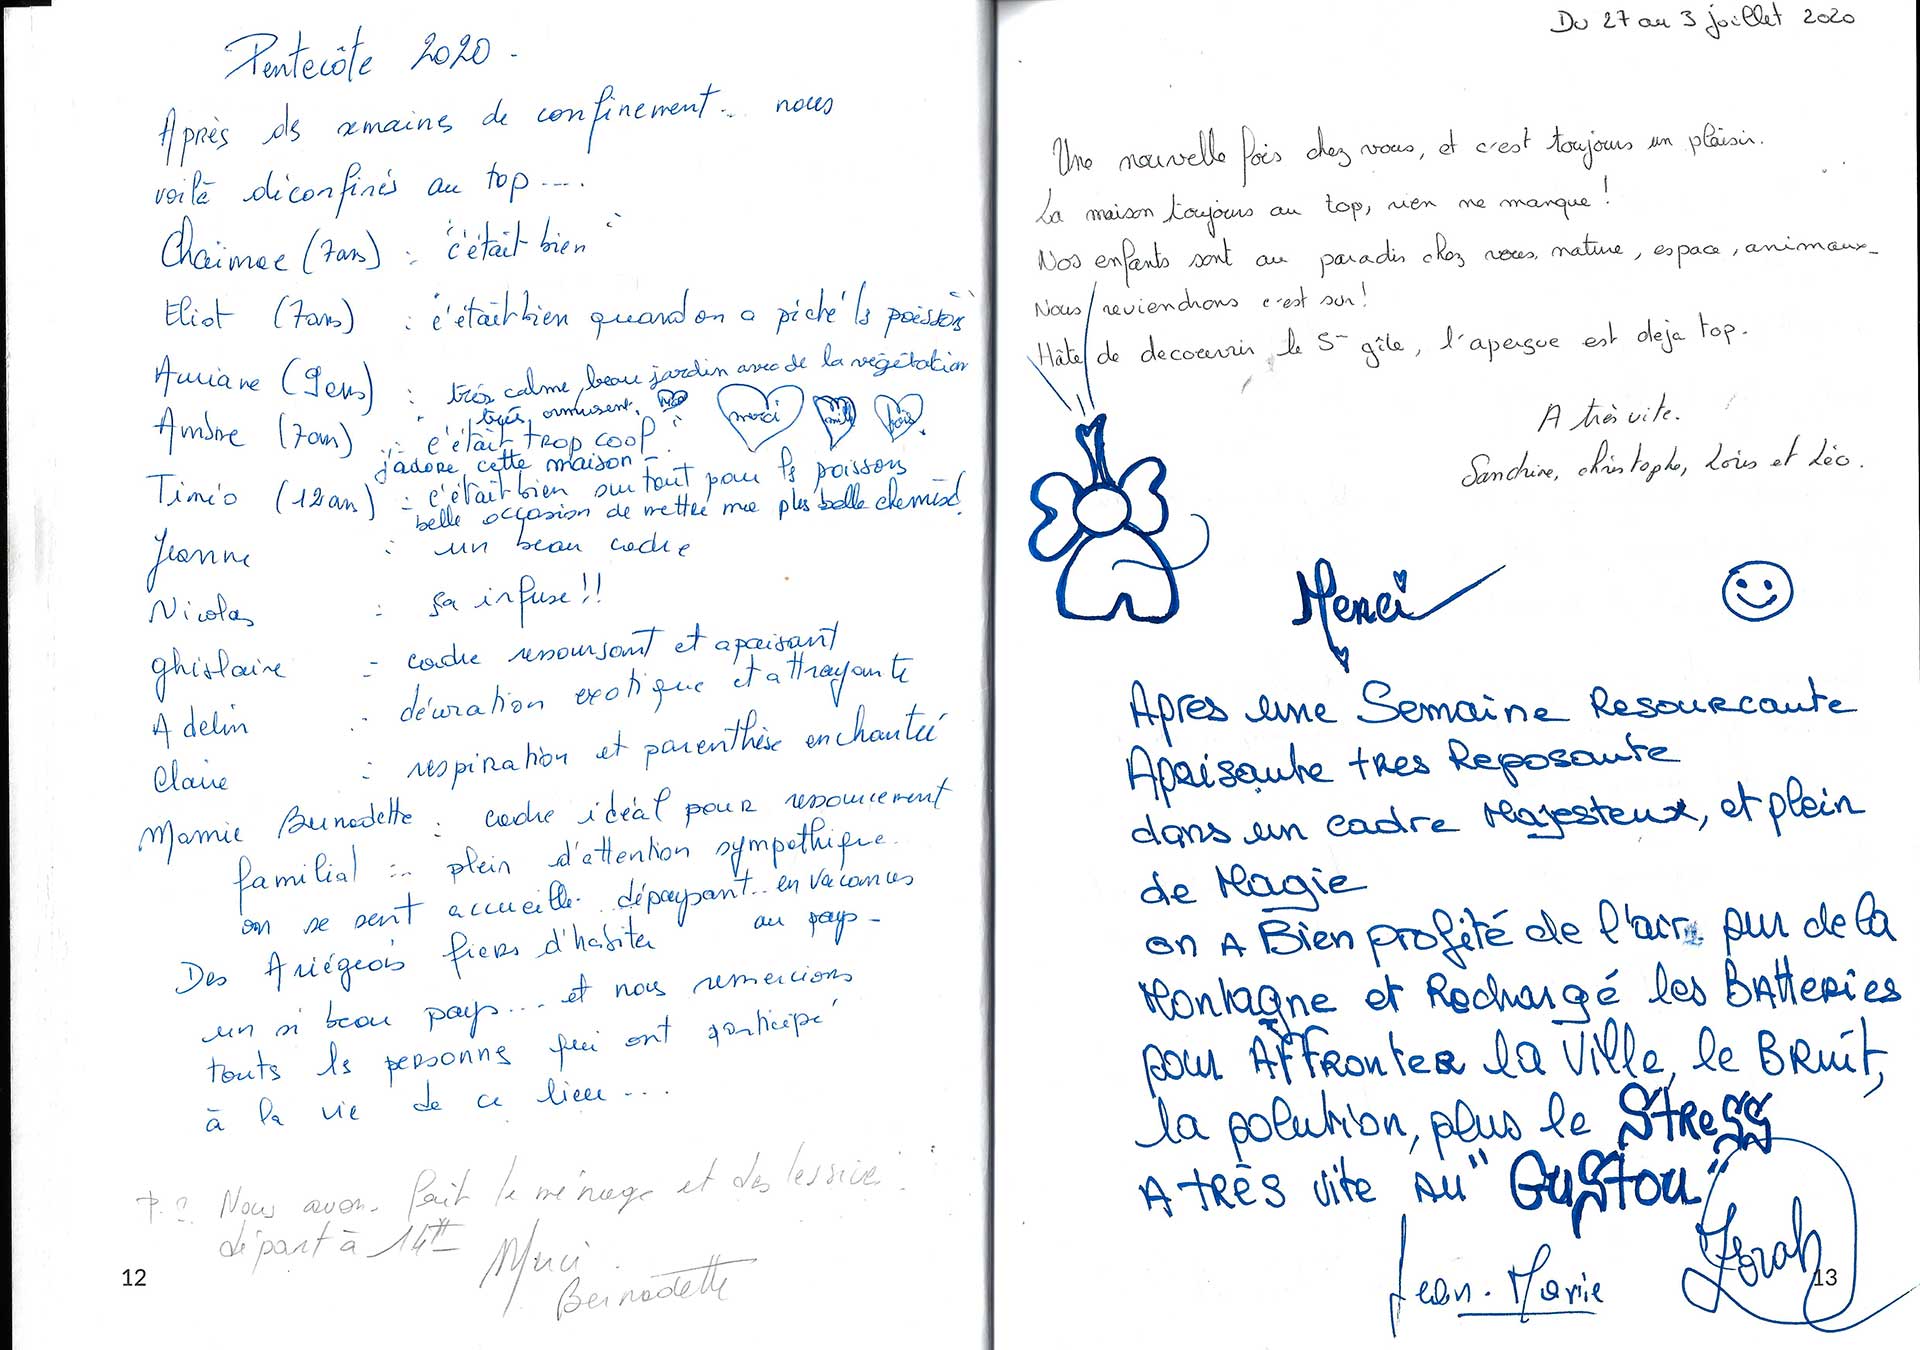 Pentecôte 2020.
Après des semaines de confinement... nous
voilà déconfinés au top....
Chaimae (7ans) : "c'était bien"
Eliot (7ans) : c'était bien quand on a pêché les poissons"
Auriane (9ans) : très calme, beau jardin avec de la végétation
très amusent.
merci mille fois.
Ambre (7ans) : "c'était trop cool"
j'adore cette maison -
Timéo (12ans) : c'était bien surtout pour les poissons
belle occasion de mettre ma plus belle chemise!
Jeanne : un beau cadre
Nicolas : ça infuse!!
Ghislaine : cadre ressoursant et apaisant
Adelin : décoration exotique et attrayante
Claire : respiration et parenthèse enchantée
Mamie Bernadette : cadre idéal pour ressourcement
familial : plein d'attention sympathique.
on se sent accueille. dépaysant.. en vacances
au pays -
Des Ariégeois fiers d'habiter
un si beau pays... et nous remercions
touts les personnes qui ont participé
à la vie de ce lieu....
P.S. Nous avons fait le ménage et des lessives.
départ à 14H
Merci
Bernadette
12
Du 27 au 3 juillet 2020
Une nouvelle fois chez vous, et c'est toujours un plaisir.
La maison toujours au top, rien ne manque!
Nos enfants sont au paradis chez vous. nature, espace, animaux_
Nous reviendrons c'est sur!
Hâte de decouvrir le 5- gîte, l'aperçue est deja top.
A très vite.
Sandrine, christophe, Loris et Léo.
Merci
Apres une Semaine Resourcante
Apaisante tres Reposante
dans un cadre Majesteux, et plein
de Magie
on A Bien profité de l'air pur de la
Montagne et Rechargé les BAtteries
pour Affronter la Ville, le Bruit,
la polution, plus le Stress
A très vite Au "Gustou"
Jean-Marie
Zorah
13